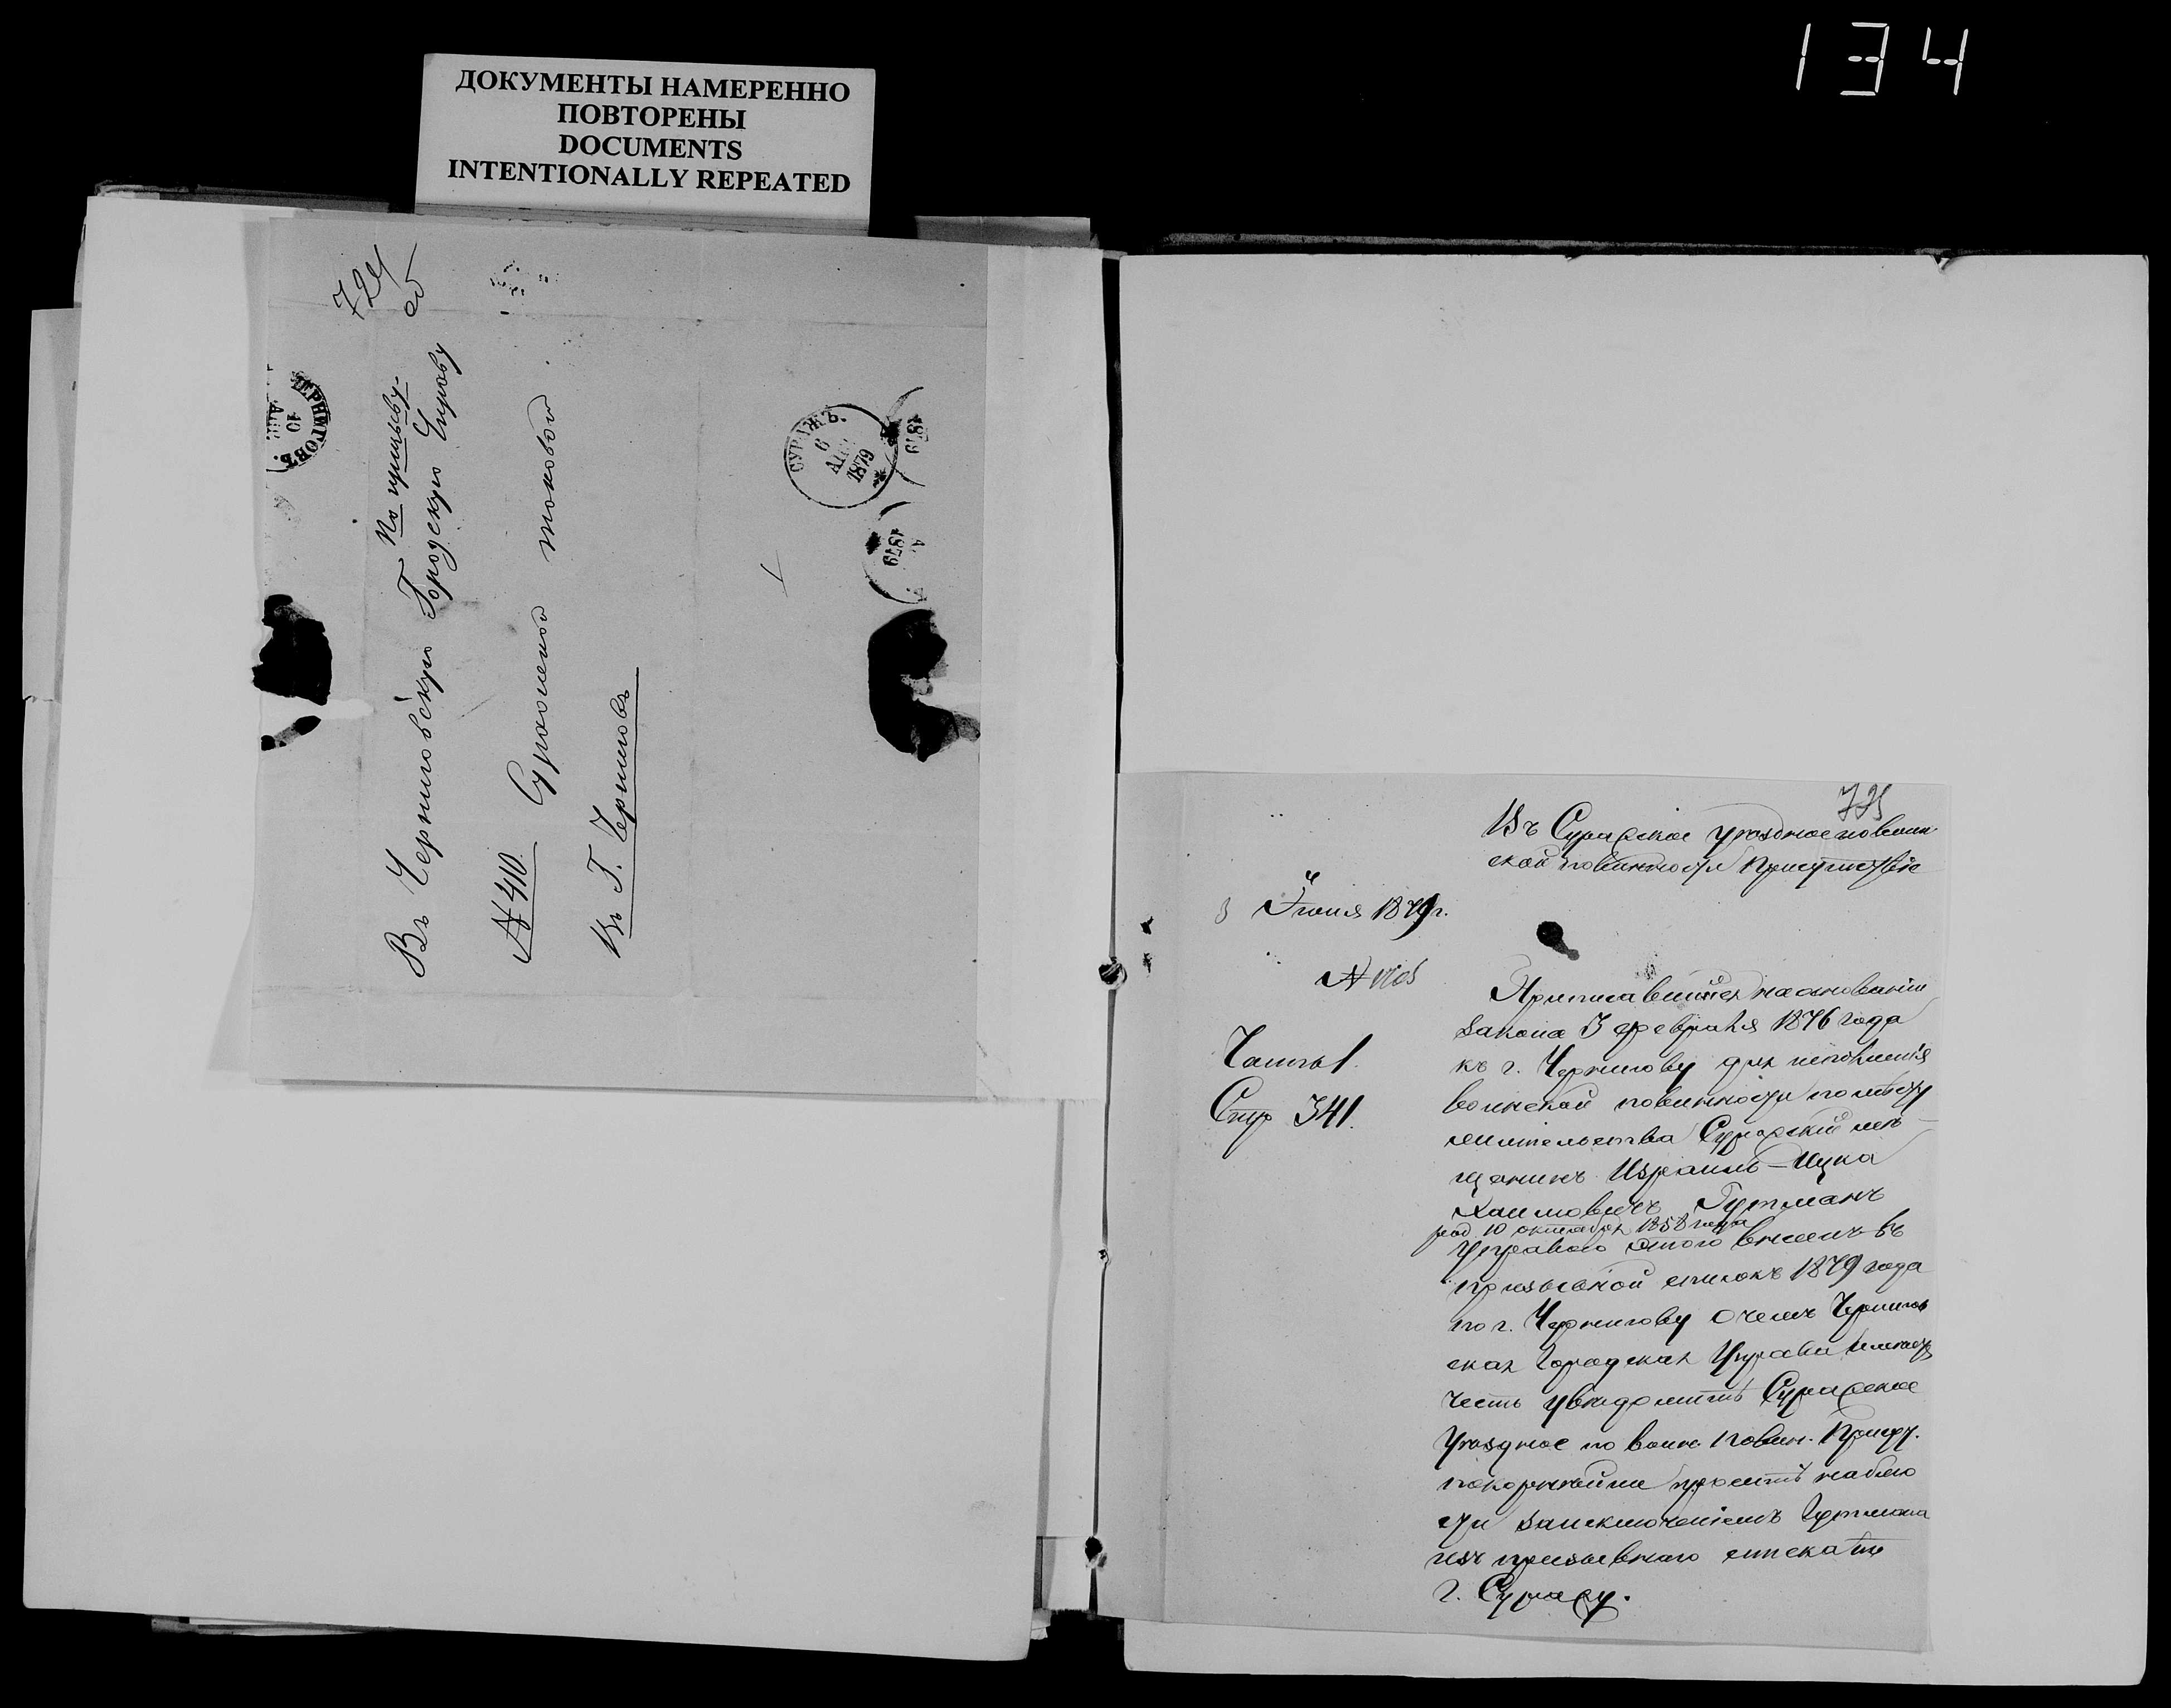 134
ДОКУМЕНТЫ НАМЕРЕННО
ПОВТОРЕНЫ
DOCUMENTS
INTENTIONALLY REPEATED
724
об
По призыву.
Въ Черниговскую Городскую Управу
№ 410 Суражской таковой
Въ Г. Черниговъ
ЧЕРНИГОВЪ
10
АПР.
СУРАЖЪ
6
АПР.
1879
1879
1879
725
Въ Суражское уѣздное по воин
ской повинности Присутствіе
3 Іюня 1879 г.
№ 1705
Часть 1.
Стр 341.
Приписавшійся на основаніи
закона 3 февраля 1876 года
къ г. Чернигову для исполненія
воинской повинности по мѣсту
жительства Суражскій мѣ
щанинъ Израиль-Ицка
Хаимовичъ Гутманъ
род. 10 октября 1858 года
Управою этою внесенъ въ
призывной списокъ 1879 года
по г. Чернигову о чемъ Чернигов
ская Городская Управа имѣетъ
честь увѣдомить Суражское
Уѣздное по воин. повин. Присут.
покорнѣйше просить
Гутмана
изъ призывнаго списка по
г. Суражу.